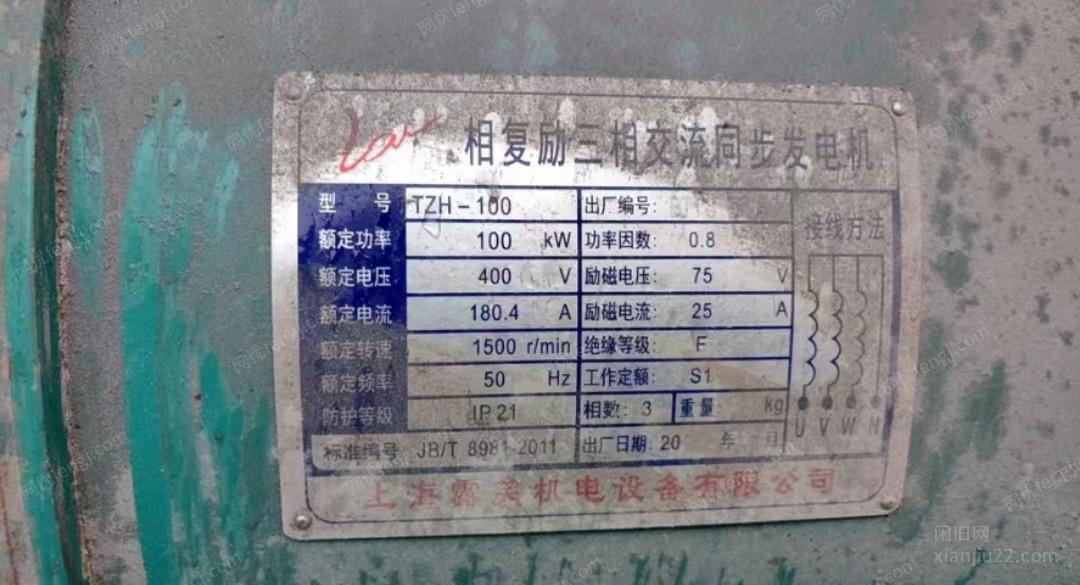 相复励三相交流同步发电机
型 号 TZH-100 出厂编号:
额定功率 100 kW 功率因数: 0.8
接线方法
额定电压 400 V 励磁电压: 75 V
额定电流 180.4 A 励磁电流: 25 A
额定转速 1500 r/min 绝缘等级: F
额定频率 50 Hz 工作定额: S1
防护等级 IP21 相数: 3 重量: kg
U V W N
标准编号 JB/T 8981-2011 出厂日期: 20 年 月
上海露美机电设备有限公司
闲旧网
xianjiu22.com